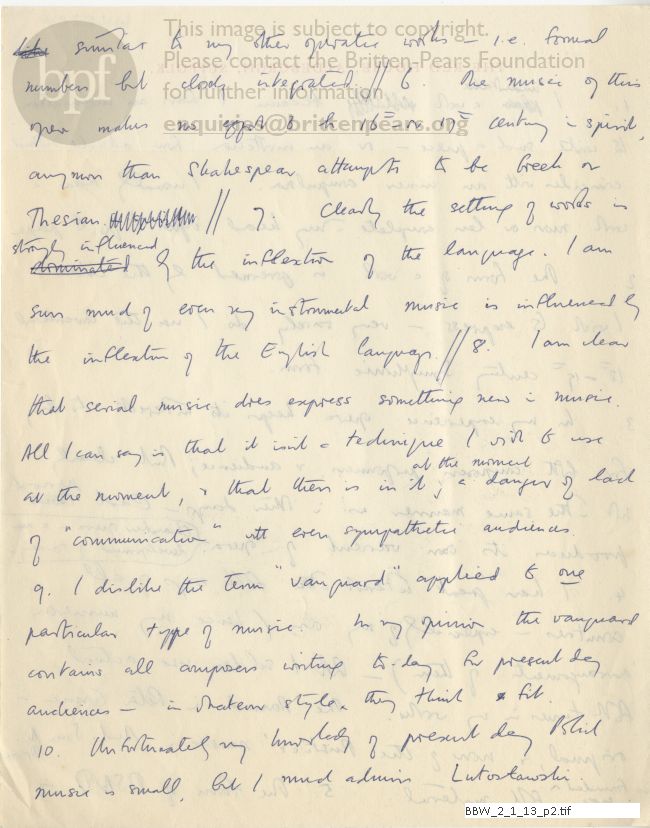 This image is subject to copyright.
Please contact the Britten-Pears Foundation
for further information
enquiries@brittenpears.org
bpf
similar to my other operatic works – i.e. formal
numbers but closely integrated. // 6. The music of this
opera makes no effort to be 16th or 17th century in spirit,
anymore than Shakespear attempts to be Greek or
Thesian // 7. Clearly the setting of words is
strongly influenced
dominated by the inflextion of the language. I am
sure much of even my instrumental music is influenced by
the inflextion of the English language. // 8. I am clear
that serial music does express something new in music.
All I can say is that it isnt a technique I wish to use
at the moment
at the moment, & that there is in it, a danger of lack
of "communication" with even sympathetic audiences.
9. I dislike the term "vanguard" applied to one
particular type of music. In my opinion the vanguard
contains all composers writing to-day for present day
audiences – in whatever style they think fit.
10. Unfortunately my knowledge of present day Polish
music is small, but I much admire Lutosławski.
BBW_2_1_13_p2.tif